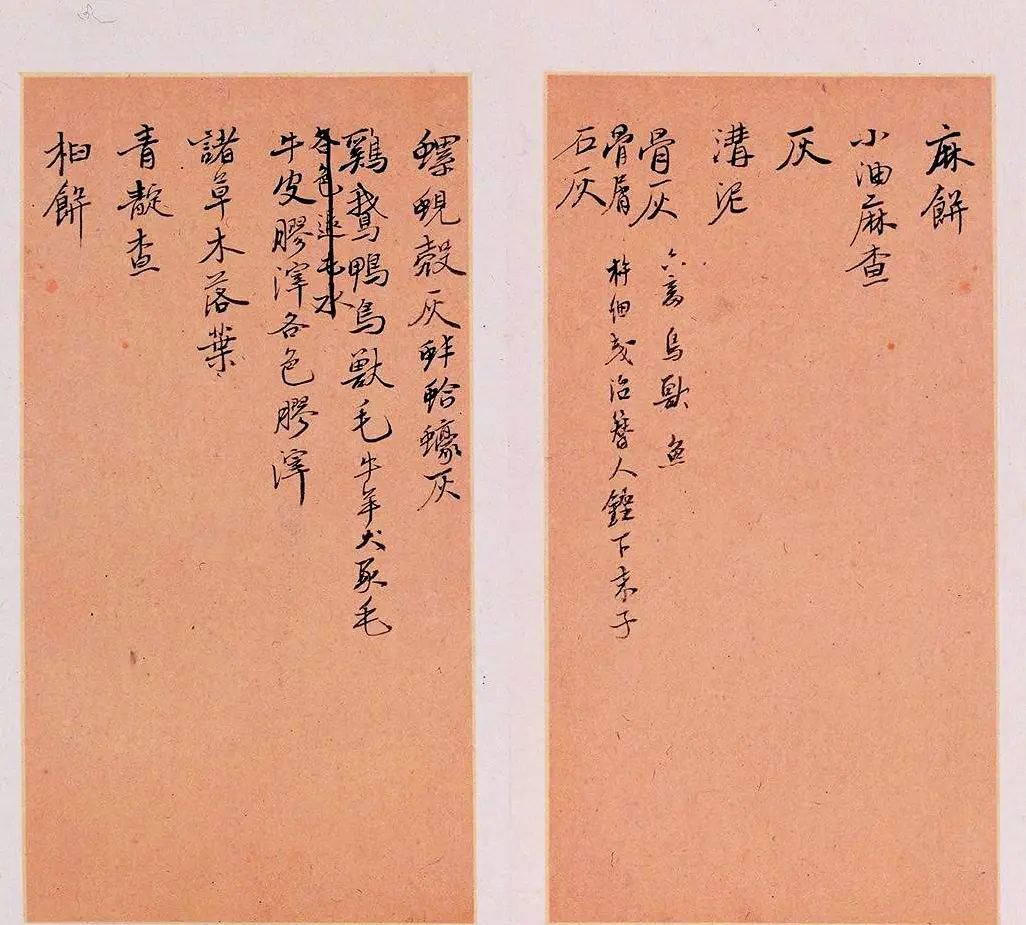 麻餅
小油麻查
灰
溝泥
骨灰 六畜鳥獸魚
骨屑 杵細或治簪人鏟下末子
石灰
螺蜆殼灰蚌蛤蠔灰
鷄鵝鴨鳥獸毛牛羊犬豕毛
各色退毛水
牛皮膠滓各色膠滓
諸草木落葉
青靛查
桕餅